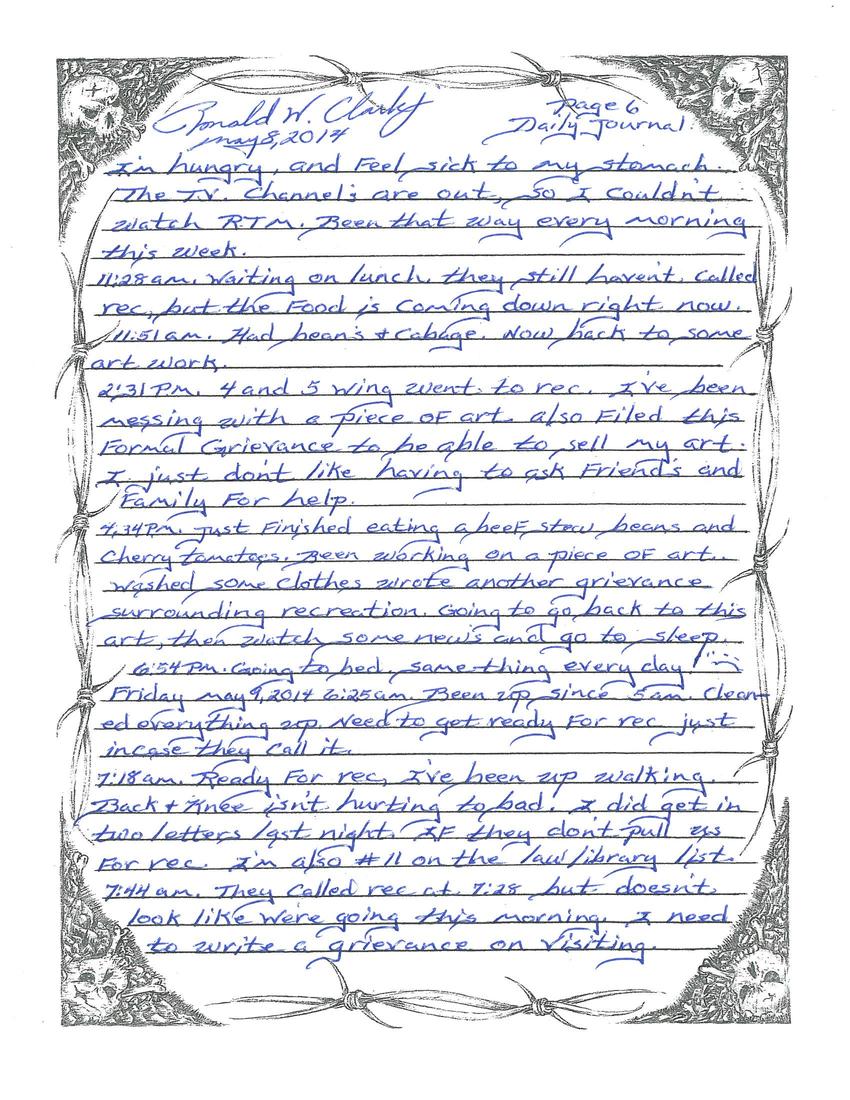 Ronald W. Clark Jr
Page 6
May 8, 2014
Daily Journal.
I'm hungry, and Feel sick to my stomach.
The T.V. Channel's are out, so I couldn't
watch RTM. Been that way every morning
this week.
11:28am. Waiting on lunch. they still haven't Called
rec, but the Food is coming down right now.
11:51am. Had bean's & Cabage. Now back to some
art work.
2:31 PM. 4 and 5 wing went to rec. I've been
messing with a piece OF art also Filed this
Formal Grievance to be able to sell my art.
I just don't like having to ask Friend's and
Family For help.
4:34PM. Just Finished eating a beeF stew beans and
Cherry tomatoes. Been working on a piece OF art..
washed some clothes wrote another grievance
surrounding recreation. Going to go back to this
art, then watch some new's and go to sleep.
6:54 PM. Going to bed, same thing every day!
Friday may 9, 2014 6:25am. Been up since 5am. Clean-
ed everything up. Need to get ready For rec just
incase they call it.
7:18am. Ready For rec, I've been up walking.
Back & Knee isn't hurting to bad. I did get in
two letters last night. IF they don't pull us
For rec. I'm also #11 on the law library list.
7:44am. They Called rec at 7:28 but doesn't
look like we're going this morning. I need
to write a grievance on Visiting.